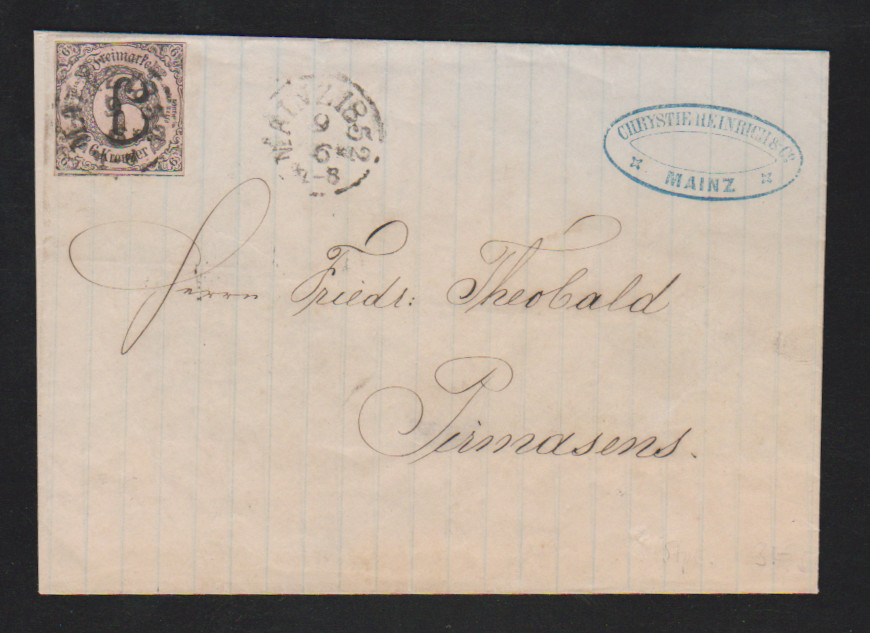 Freimarke
6
6 Kreuzer
MAINZ 1852
9
6
CHRYSTIE HEINRICH & Co
MAINZ
Herrn Friedr: Theobald
Pirmasens.